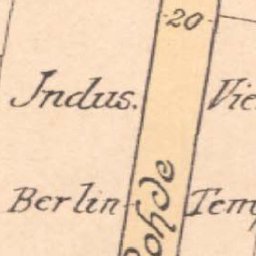 -20-
Indus. Vie
Berlin- Temp
ohde